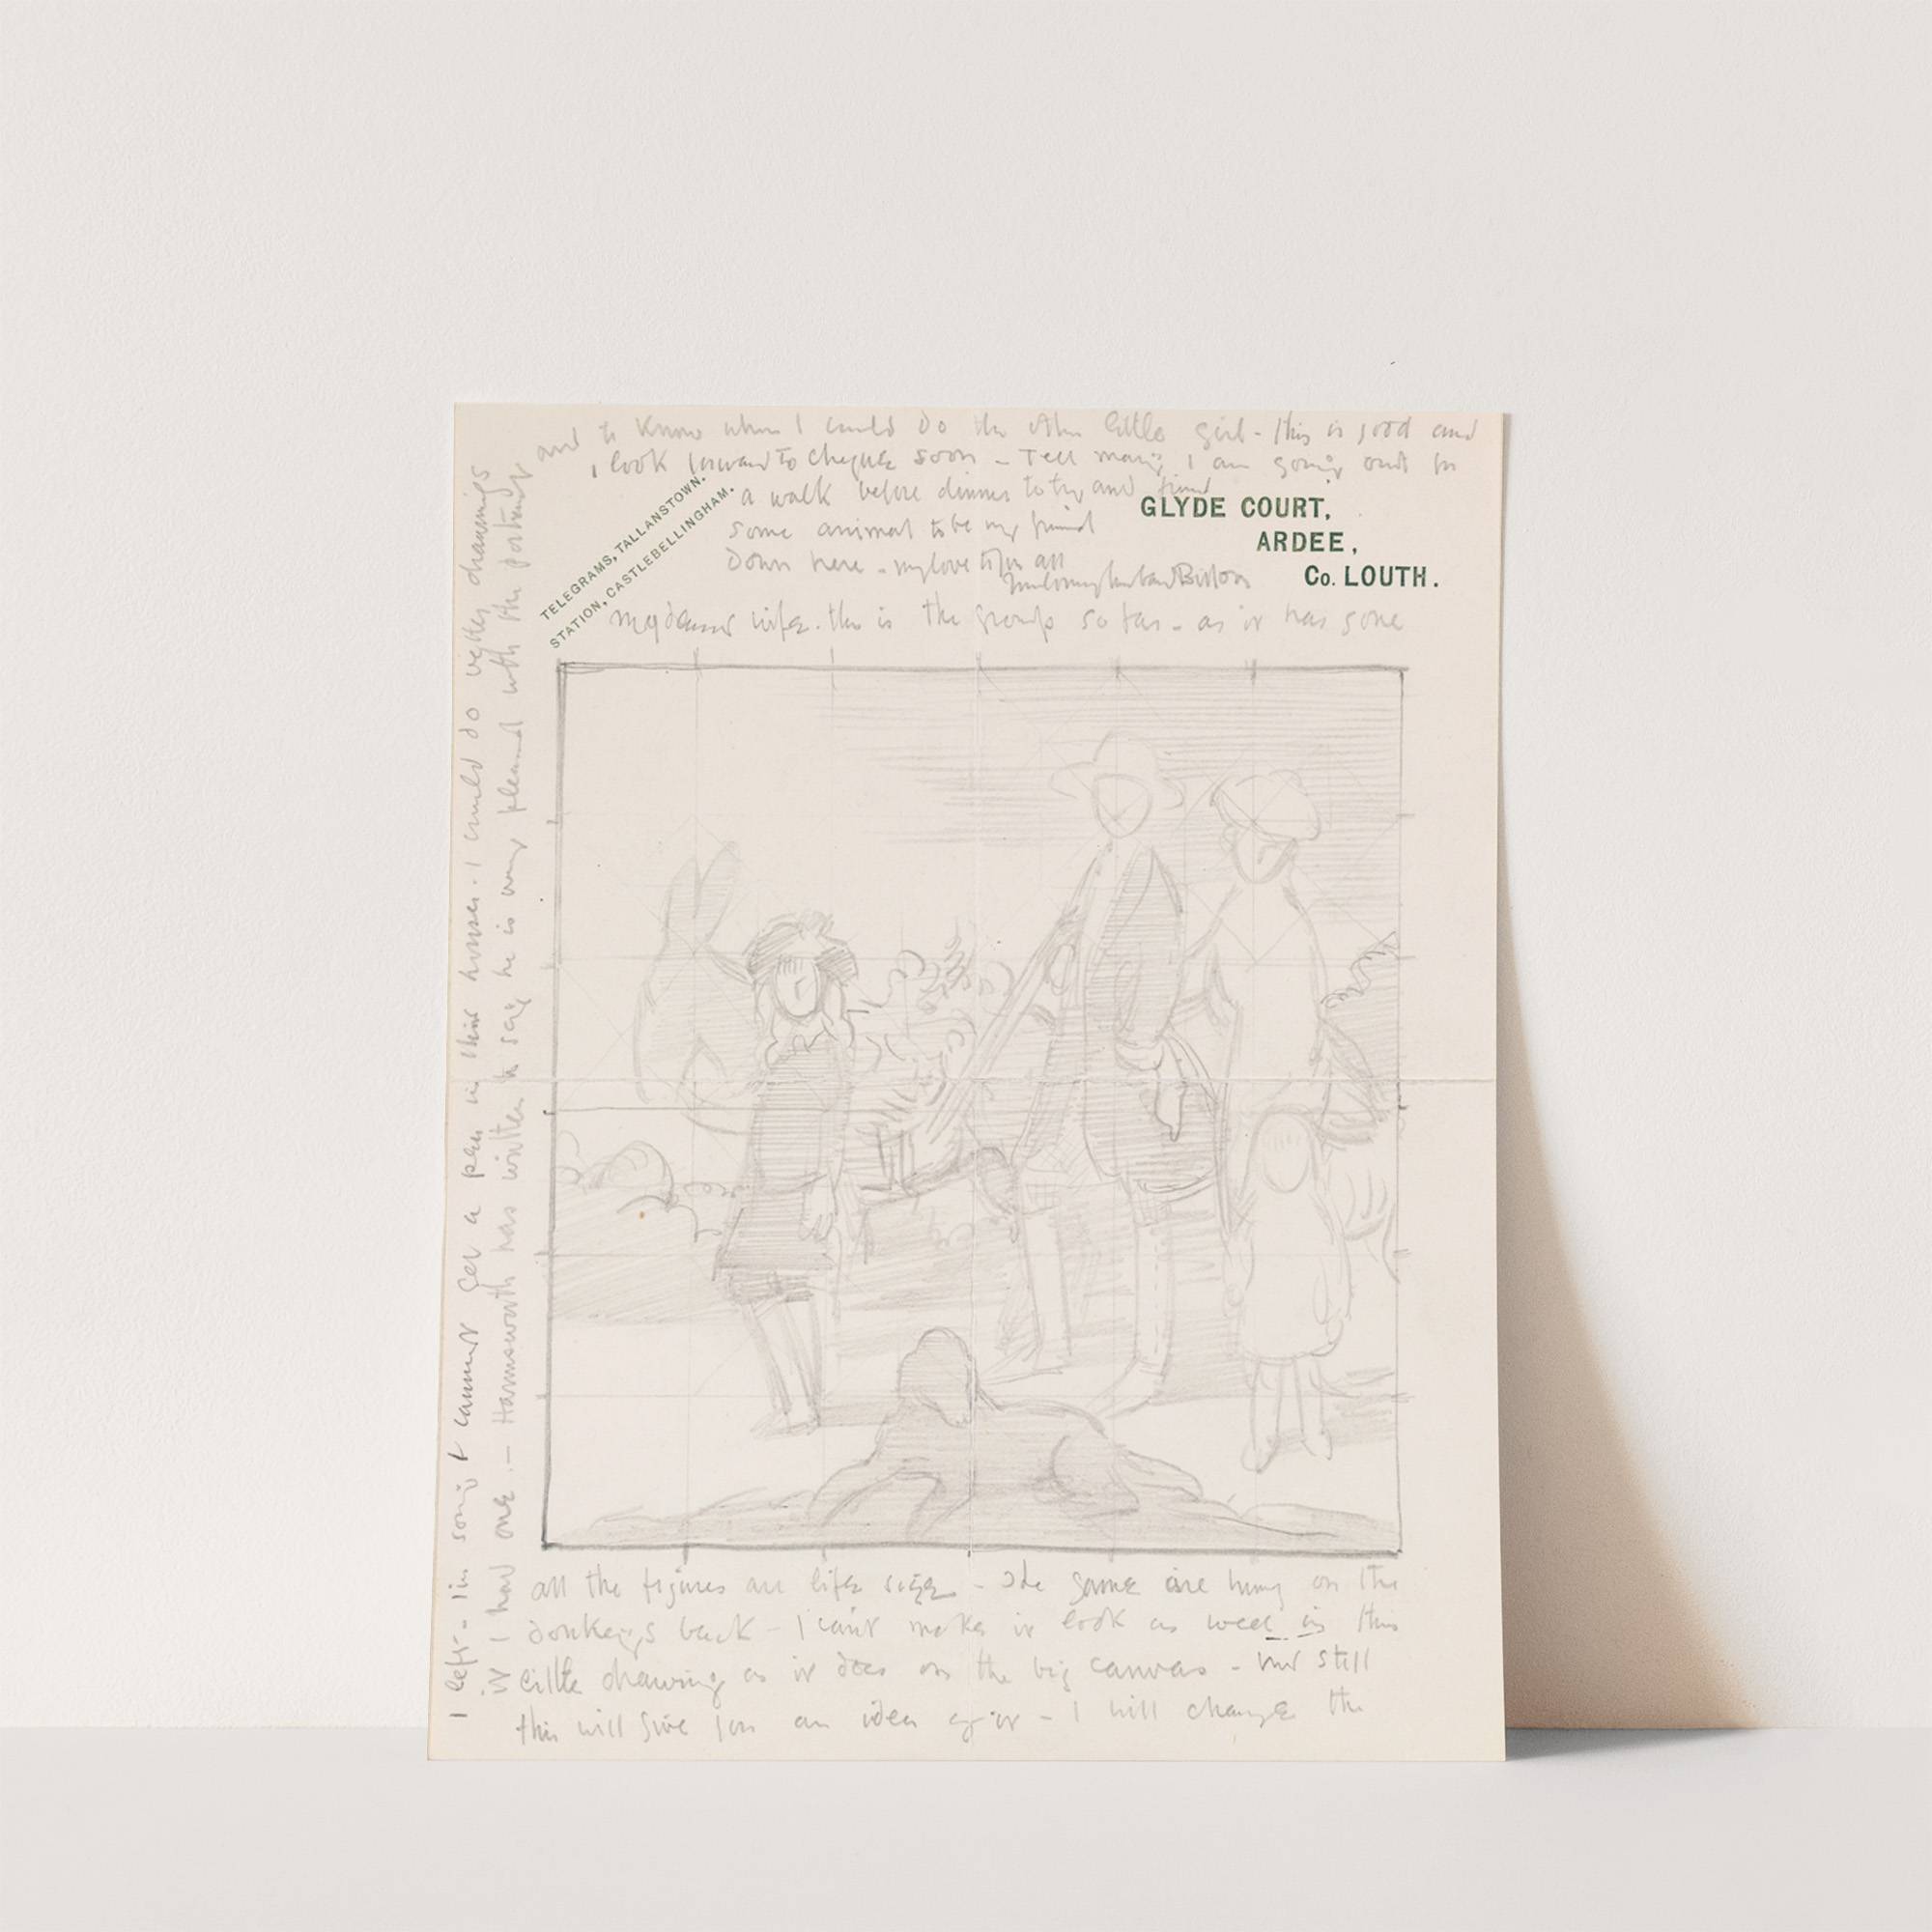 and to know when I could do the other little girl - this is good and
I look forward to cheque soon - Tell mary I am going out for
a walk before dinner to try and find
some animal to be my friend
Down here - my love to you all
GLYDE COURT,
ARDEE,
Co. LOUTH.
TELEGRAMS, TALLANSTOWN.
STATION, CASTLEBELLINGHAM.
My dearest wife. this is the group so far - as it has gone
all the figures are life size - The game are hung on the
donkeys back - I can't make it look as well in this
little drawing as it does on the big canvas - but still
this will give you an idea of it - I will change the
I left - Im sorry I cannot get a pen in this house. I could do better drawings
if I had one. - Harmsworth has written to say he is very pleased with the portrait